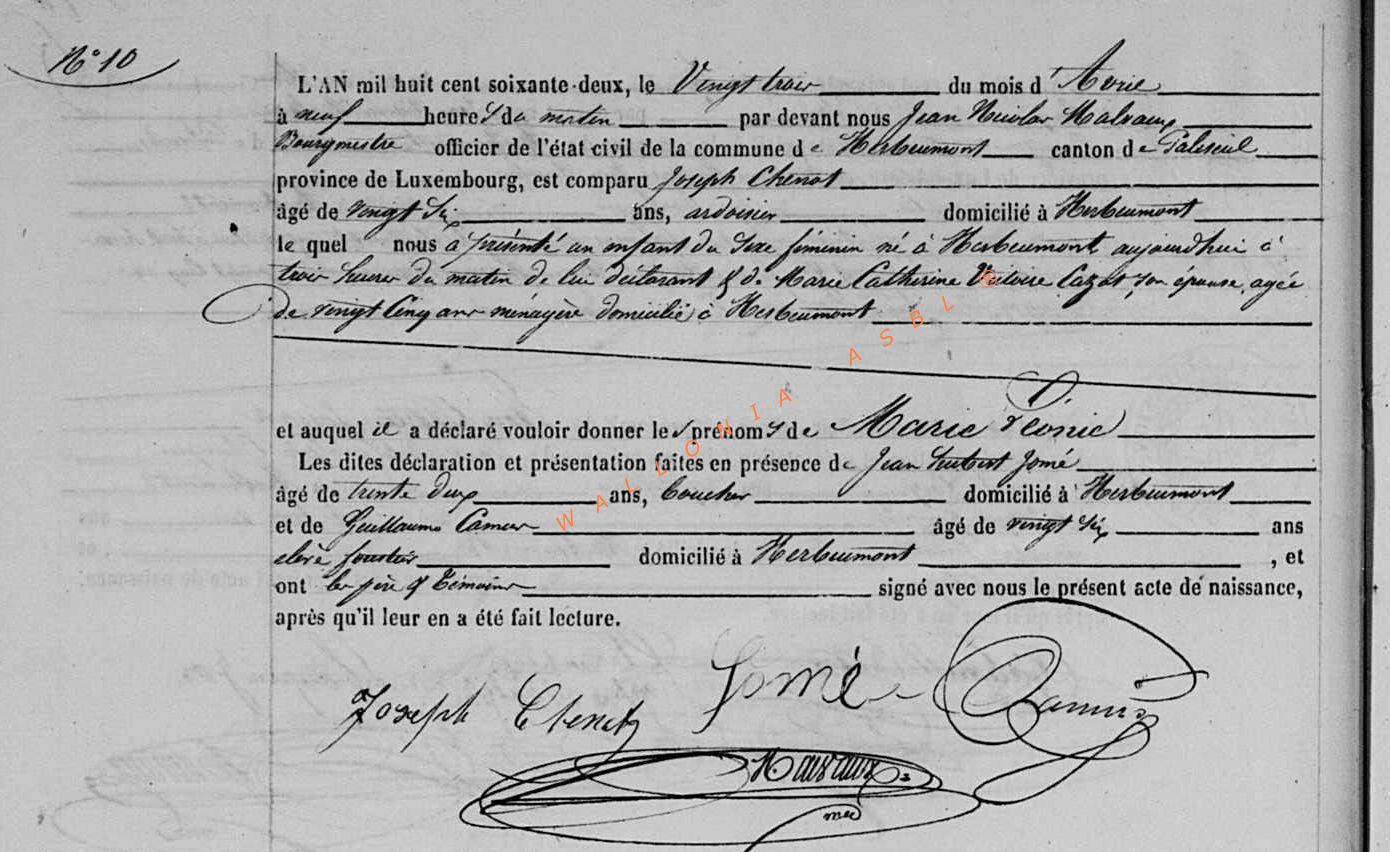 N° 10
L'AN mil huit cent soixante-deux, le Vingt trois du mois d'Avril
à neuf heures du matin par devant nous Jean Nicolas Malvaux
Bourgmestre officier de l'état civil de la commune de Herbeumont canton de Paliseul
province de Luxembourg, est comparu Joseph Chenot
âgé de vingt six ans, ardoisier domicilié à Herbeumont
le quel nous à présenté un enfant du sexe féminin né à Herbeumont aujourdhui à
trois heures du matin de lui déclarant & de Marie Catherine Victoire Lazot son épouse, agée
de vingt Cinq ans ménagère domicilié à Herbeumont
et auquel il a déclaré vouloir donner les prénoms de Marie Léonie
Les dites déclaration et présentation faites en présence de Jean Hubert Jomé
âgé de trente deux ans, boucher domicilié à Herbeumont
et de Guillaume Camus âgé de vingt six ans
domicilié à Herbeumont , et
ont le père & témoins signé avec nous le présent acte de naissance,
après qu'il leur en a été fait lecture.
Joseph Chenot Jomé Camus
Malvaux
WALLONIA ASBL ©